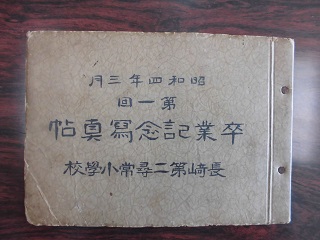 昭和四年三月
第一回
卒業記念寫真帖
長崎第二尋常小學校